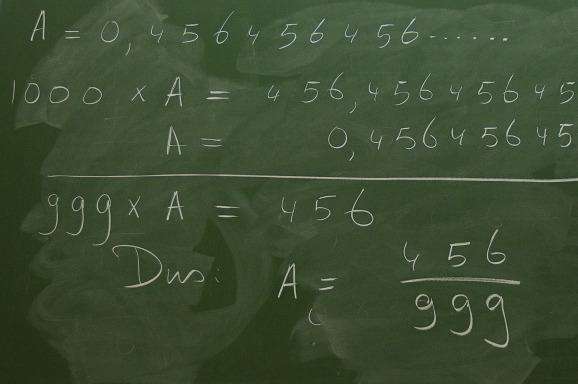 A = 0,456456456......
1000 × A = 456,45645645
A = 0,45645645
999 × A = 456
Dus: A = 456/999